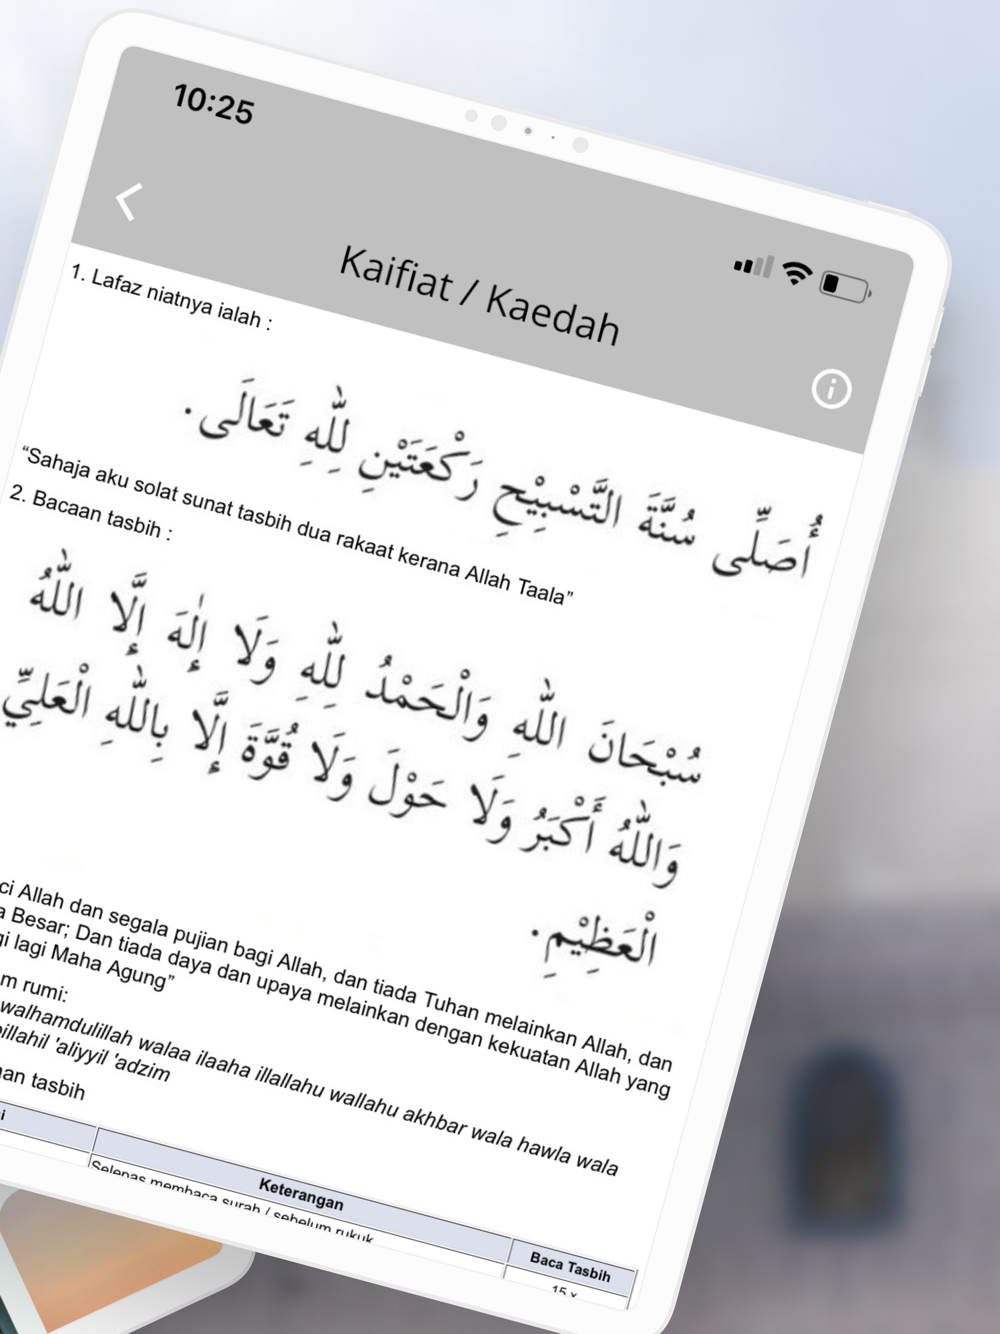 10:25
Kaifiat / Kaedah
1. Lafaz niatnya ialah :
أُصَلِّى سُنَّةَ التَّسْبِيْحِ رَكْعَتَيْنِ لِلّٰهِ تَعَالَى.
“Sahaja aku solat sunat tasbih dua rakaat kerana Allah Taala”
2. Bacaan tasbih :
سُبْحَانَ اللّٰهِ وَالْحَمْدُ لِلّٰهِ وَلَا إِلٰهَ إِلَّا اللّٰهُ
وَاللّٰهُ أَكْبَرُ وَلَا حَوْلَ وَلَا قُوَّةَ إِلَّا بِاللّٰهِ الْعَلِيِّ
الْعَظِيْمِ.
ci Allah dan segala pujian bagi Allah, dan tiada Tuhan melainkan Allah, dan
a Besar; Dan tiada daya dan upaya melainkan dengan kekuatan Allah yang
gi lagi Maha Agung”
m rumi:
walhamdulillah walaa ilaaha illallahu wallahu akhbar wala hawla wala
billahil 'aliyyil 'adzim
an tasbih
Keterangan
Baca Tasbih
Selepas membaca surah / sebelum rukuk
15 x